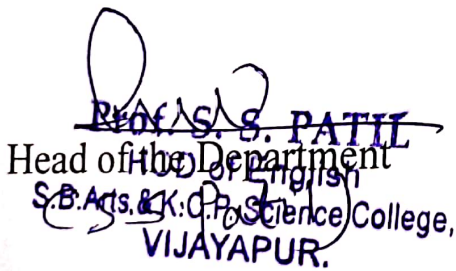 Prof. S. S. PATIL
Head of the Department
HOD of English
(S S Patil)
S.B.Arts.& K.C.P.Science College,
VIJAYAPUR.